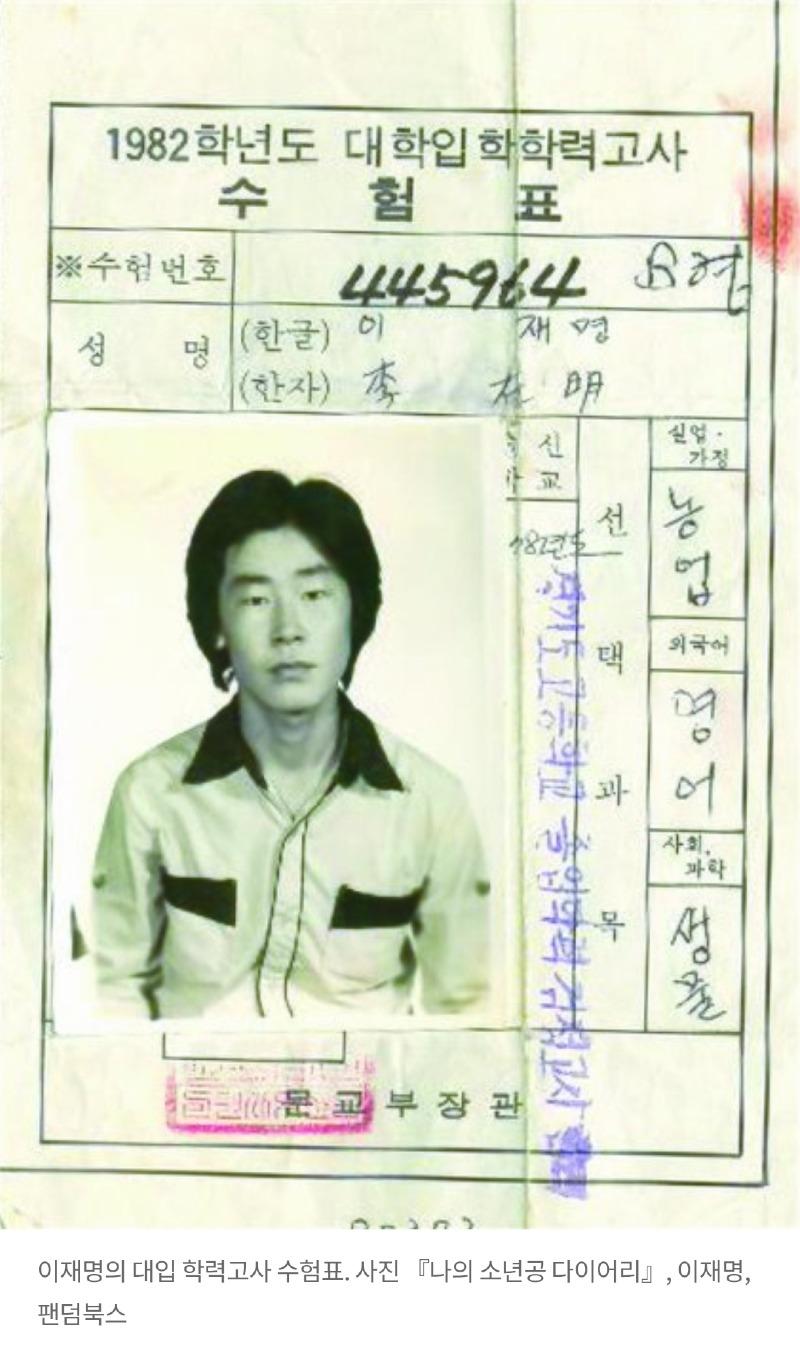 1982학년도 대학입학학력고사
수 험 표
※수험번호 445964
성 명 (한글) 이 재 명
(한자) 李 在 明
신
교
선 택 과 목
실업·
가정
농업
외국어
영어
사회.
과학
생물
경기도 고등학교 졸업학력 검정고사
문교부장관
이재명의 대입 학력고사 수험표. 사진 『나의 소년공 다이어리』, 이재명,
팬덤북스